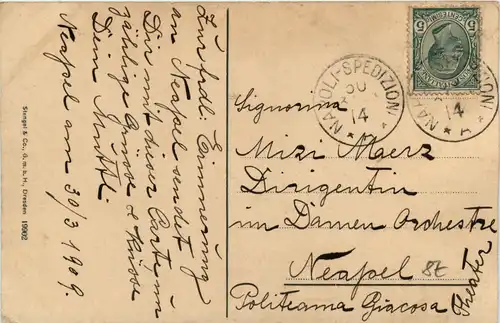 Zur frdl. Erinnerung
an Neapel sendet
Dir mit dieser Carte
Grüsse & Küsse
Deine Mutti.
Neapel am 30/3 1909.
Stengel & Co., G. m. b. H., Dresden 19902
NAPOLI-SPEDIZIONI
14
14
Signorina
Mizi Maerz
Dirigentin
im Damen Orchestre
Neapel
Politeama Giacosa
Theater